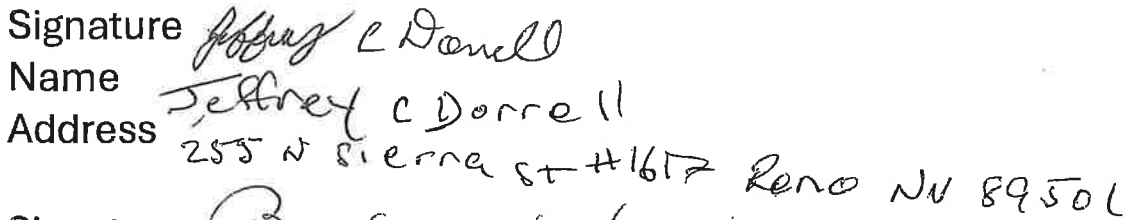 Signature Jeffrey C Dorrell
Name Jeffrey C Dorrell
Address 255 N Sierra St #1617 Reno NV 89501